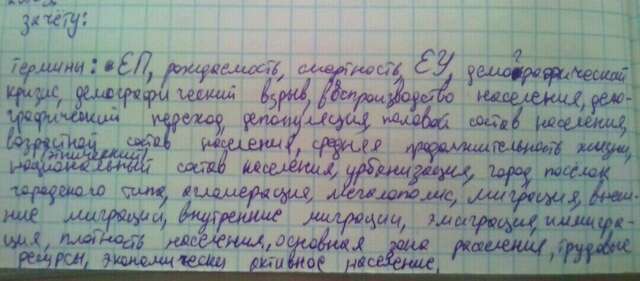 зачёту:
Термины: ЕП, рождаемость, смертность, ЕУ, демографический
кризис, демографический взрыв, воспроизводство населения, демо-
графический переход, депопуляция, половой состав населения,
возрастной состав населения, средняя продолжительность жизни,
этнический
национальный состав населения, урбанизация, город, посёлок
городского типа, агломерация, мегалополис, миграция, внеш-
ние миграции, внутренние миграции, эмиграция, иммигра-
ция, плотность населения, основная зона расселения, трудовые
ресурсы, экономически активное население,